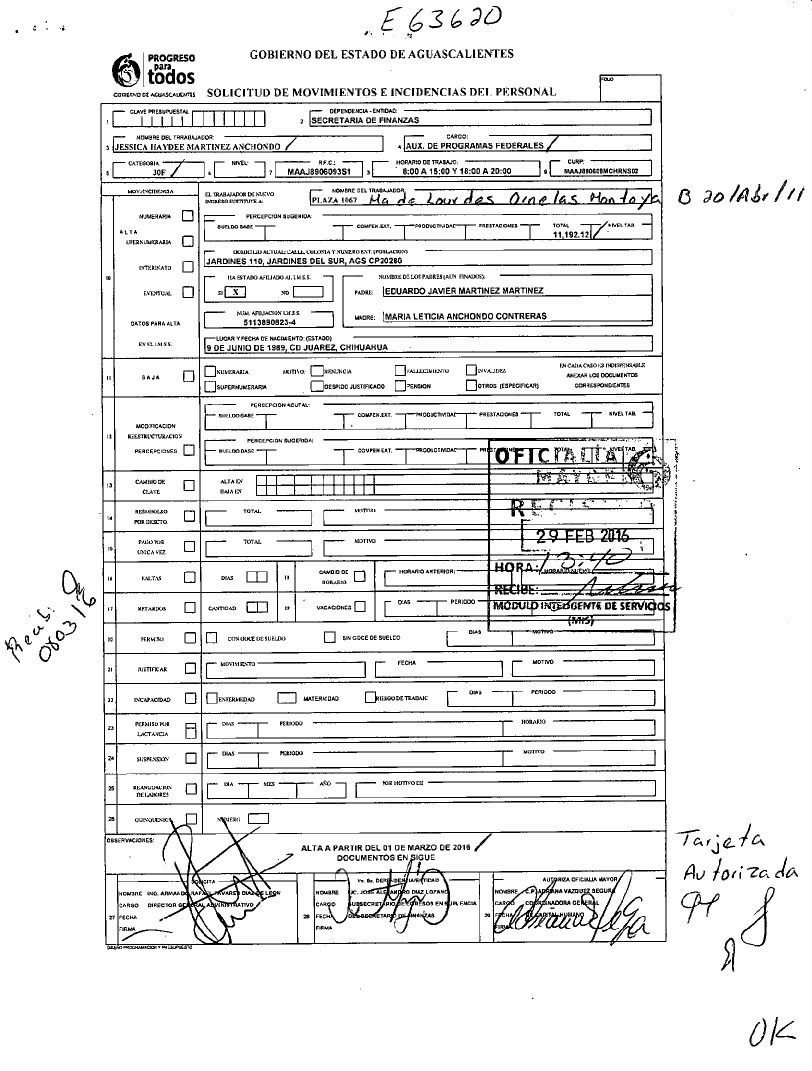 E 63620
PROGRESO
para
todos
GOBIERNO DE AGUASCALIENTES
GOBIERNO DEL ESTADO DE AGUASCALIENTES
SOLICITUD DE MOVIMIENTOS E INCIDENCIAS DEL PERSONAL
FOLIO
1 CLAVE PRESUPUESTAL 2 DEPENDENCIA - ENTIDAD:
SECRETARIA DE FINANZAS
NOMBRE DEL TRRABAJADOR: CARGO:
3 JESSICA HAYDEE MARTINEZ ANCHONDO 4 AUX. DE PROGRAMAS FEDERALES
CATEGORIA NIVEL: R.F.C.: HORARIO DE TRABAJO: CURP:
5 30F 6 7 MAAJ8906093S1 8:00 A 15:00 Y 18:00 A 20:00 9 MAAJ890609MCHRNS02
MOV/INCIDENCIA EL TRABAJADOR DE NUEVO INGRESO SUSTITUYE A: NOMBRE DEL TRABAJADOR
PLAZA 1067 Ma de Lourdes Ornelas Montoya B 20/Abr/11
NUMERARIA PERCEPCION SUGERIDA:
SUELDO BASE COMPEN.EXT. PRODUCTIVIDAD PRESTACIONES TOTAL NIVEL TAB.
ALTA 11,192.12
SUPERNUMERARIA
DOMICILIO ACTUAL: CALLE, COLONIA Y NUMERO EXT. (POBLACION)
JARDINES 110, JARDINES DEL SUR, AGS CP20280
INTERINATO
10 HA ESTADO AFILIADO AL I.M.S.S. NOMBRE DE LOS PADRES (AUN FINADOS):
EVENTUAL SI X NO PADRE: EDUARDO JAVIER MARTINEZ MARTINEZ
NUM. AFILIACION I.M.S.S.
DATOS PARA ALTA 5113890823-4 MADRE: MARIA LETICIA ANCHONDO CONTRERAS
EN EL I.M.S.S. LUGAR Y FECHA DE NACIMIENTO: (ESTADO)
9 DE JUNIO DE 1989, CD JUAREZ, CHIHUAHUA
11 BAJA NUMERARIA MOTIVO: RENUNCIA FALLECIMIENTO INVALIDEZ EN CADA CASO ES INDISPENSABLE
ANEXAR LOS DOCUMENTOS
SUPERNUMERARIA DESPIDO JUSTIFICADO PENSION OTROS (ESPECIFICAR) CORRESPONDIENTES
PERCEPCION ACUTAL:
SUELDO BASE COMPEN.EXT. PRODUCTIVIDAD PRESTACIONES TOTAL NIVEL TAB.
12 MODIFICACION
REESTRUCTURACION
PERCEPCIONES
PERCEPCION SUGERIDA:
SUELDO BASE COMPEN EXT. PRODUCTIVIDAD PRESTACIONES TOTAL NIVEL TAB.
OFICIALIA
MAYOR
13 CAMBIO DE CLAVE ALTA EN
BAJA EN
14 REEMBOLSO POR DSCTO. TOTAL MOTIVO
15 PAGO POR UNICA VEZ TOTAL MOTIVO
29 FEB 2016
HORA: 13:40
RECIBE:
MODULO INTELIGENTE DE SERVICIOS
(MIS)
16 FALTAS DIAS 18 CAMBIO DE HORARIO HORARIO ANTERIOR:
17 RETARDOS CANTIDAD 19 VACACIONES DIAS PERIODO
Recib:
080316
20 PERMISO CON GOCE DE SUELDO SIN GOCE DE SUELDO DIAS MOTIVO
21 JUSTIFICAR MOVIMIENTO FECHA MOTIVO
22 INCAPACIDAD ENFERMEDAD MATERNIDAD RIESGO DE TRABAJO DIAS PERIODO
23 PERMISO POR LACTANCIA DIAS PERIODO HORARIO
24 SUSPENSION DIAS PERIODO MOTIVO
25 REANUDACION DE LABORES DIA MES AÑO POR MOTIVO DE
26 QUINQUENIO NUMERO
OBSERVACIONES:
ALTA A PARTIR DEL 01 DE MARZO DE 2016
DOCUMENTOS EN SIGUE
Tarjeta
Autorizada
SOLICITA Vo. Bo. DEPENDENCIA/ENTIDAD AUTORIZA OFICIALIA MAYOR
NOMBRE ING. ARMANDO RAFAEL TAVARES DIAZ DE LEON NOMBRE LIC. JOSE ALEJANDRO DIAZ LOZANO NOMBRE C.P. ADRIANA VAZQUEZ SEGURA
CARGO DIRECTOR GENERAL ADMINISTRATIVO CARGO SUBSECRETARIO DE EGRESOS EN SUPLENCIA CARGO COORDINADORA GENERAL
27 FECHA 28 FECHA DEL SECRETARIO DE FINANZAS 29 FECHA DE CAPITAL HUMANO
FIRMA FIRMA FIRMA
DISEÑO PROGRAMACION Y PRESUPUESTO
OK